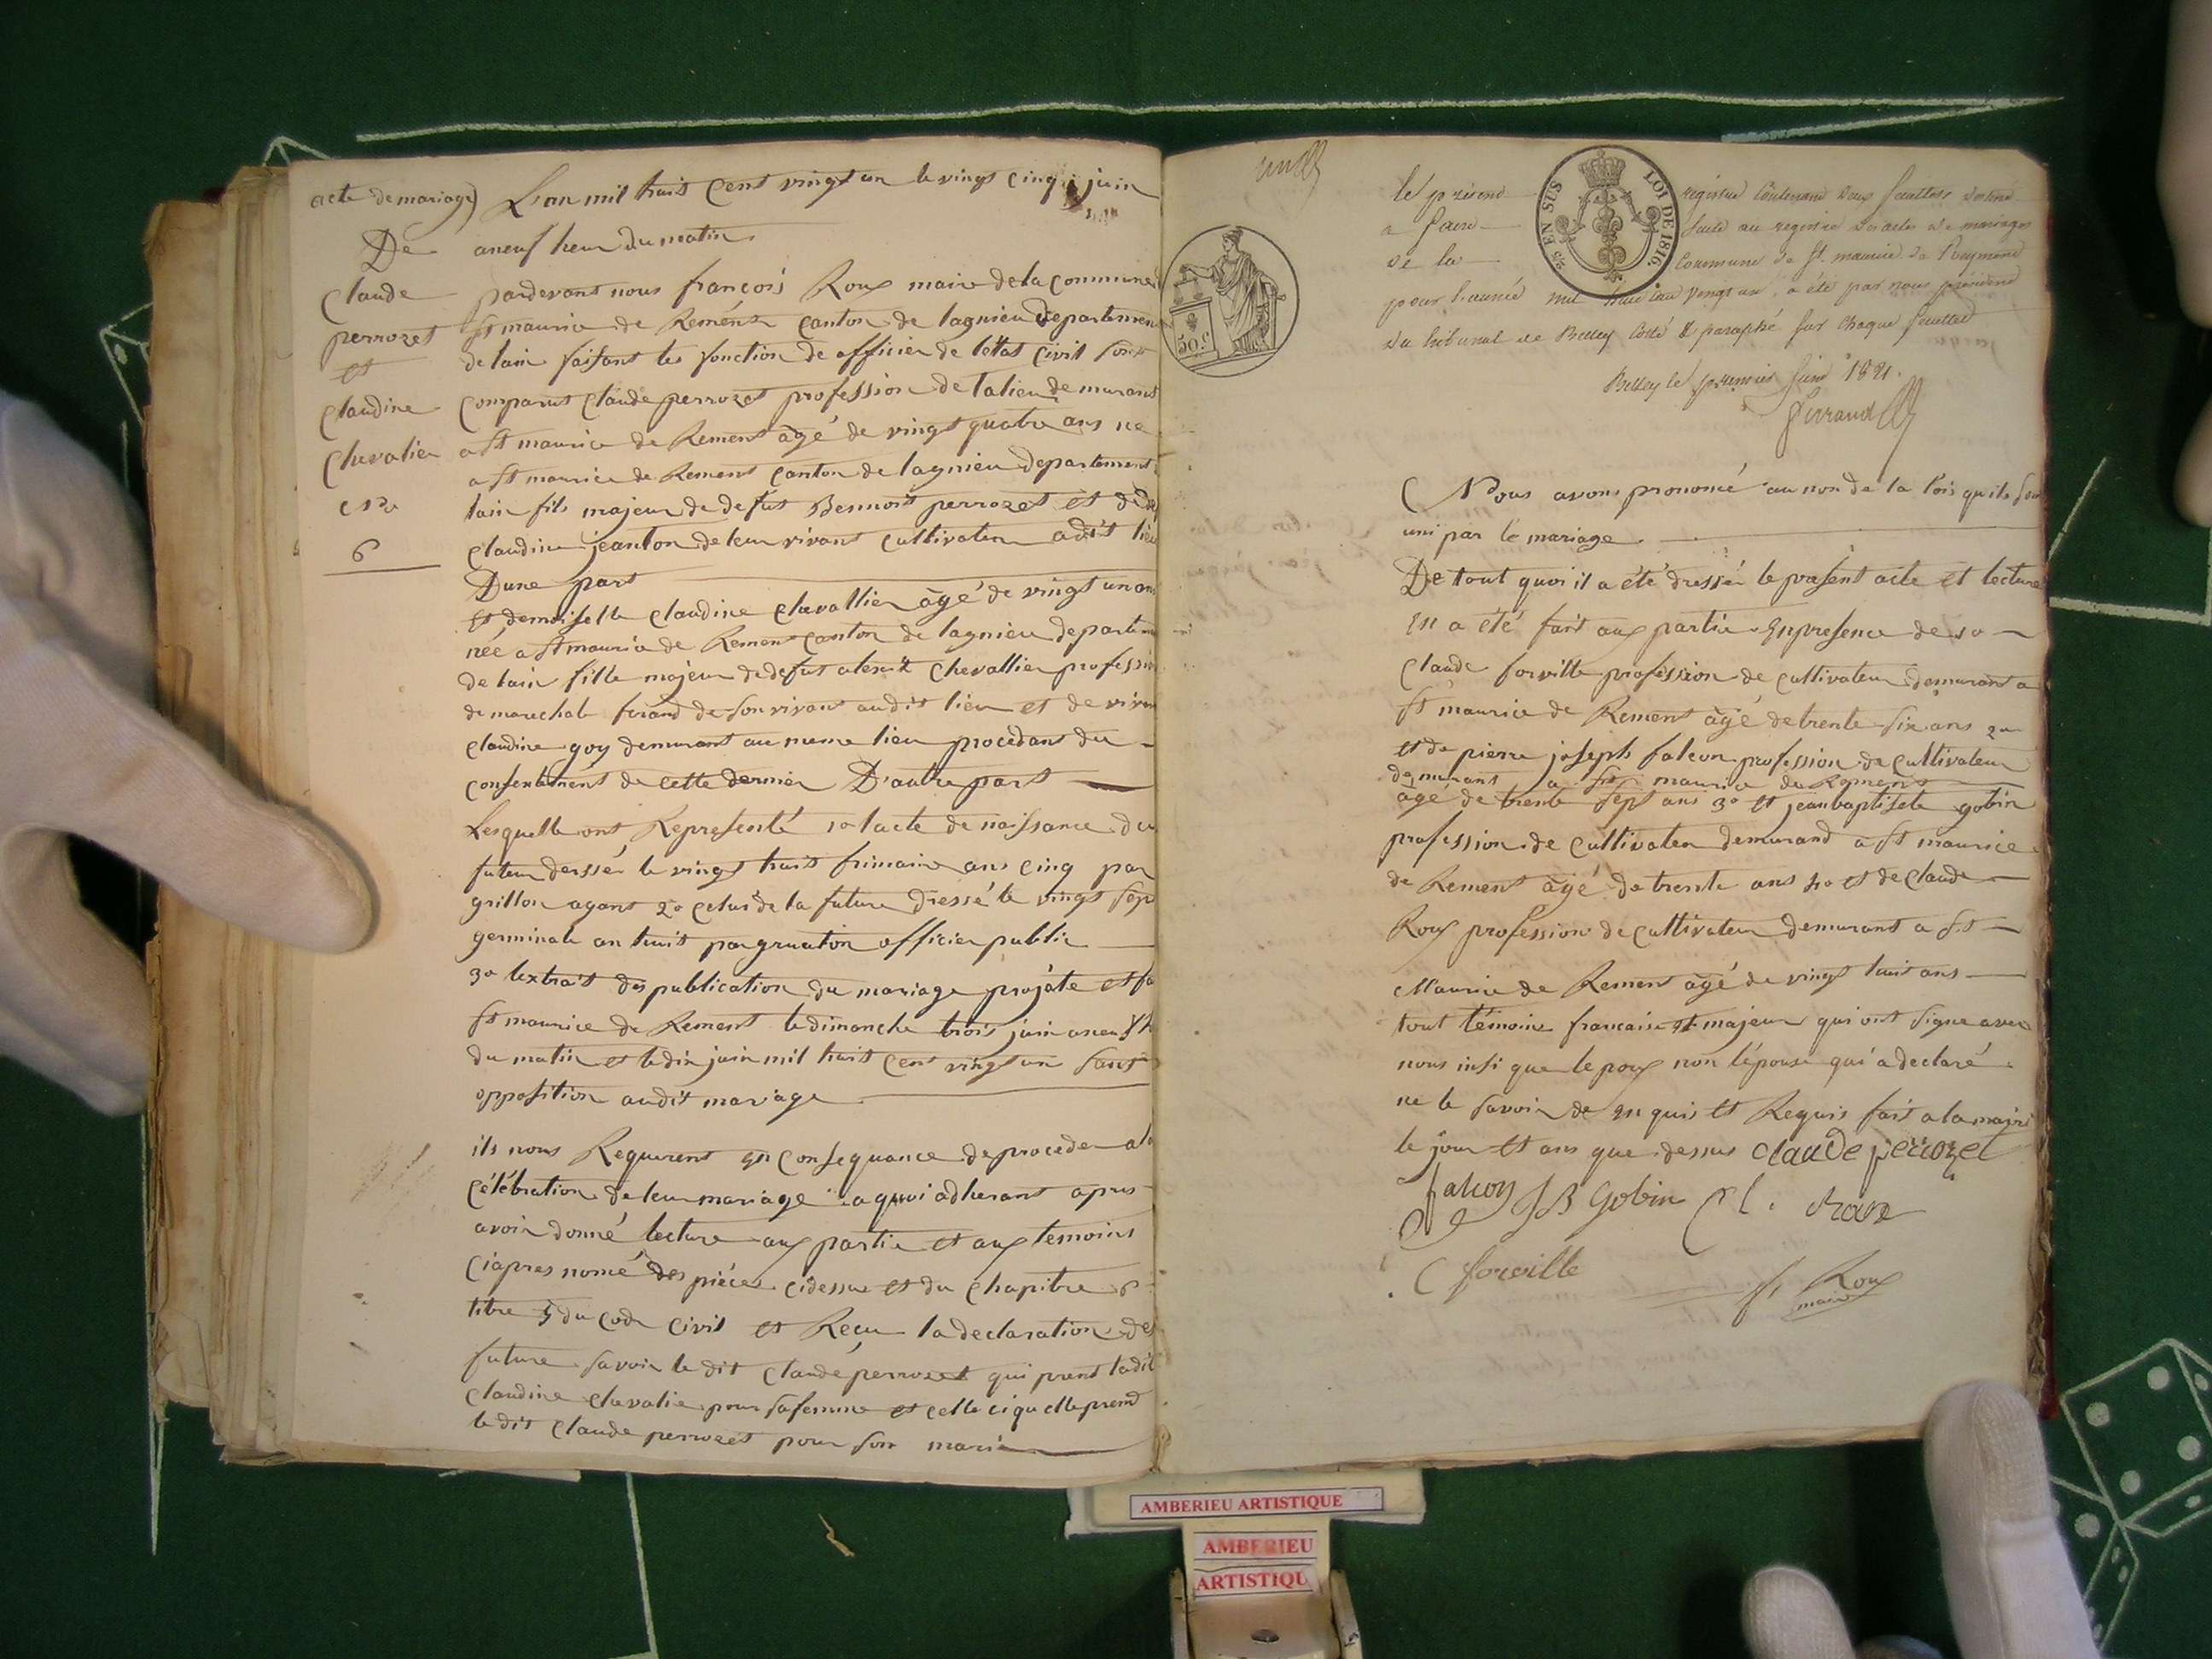 acte de mariage) L'an mil huit cent vingt un le vingt cinq juin
De aneuf heur du matin
Claude pardevant nous françois Roux maire de la commune
perrozet St maurice de Remens canton de lagnieu departemen
et de lain faisant les fonction de officier de letat civil sont
Claudine comparut Claude perrozet profession de demurant
Chevalier a St maurice de Remens âgé de vingt quatre ans ne
a St maurice de Remens canton de lagnieu departement
N° lain fils majeur de defut Bennoit perrozet et de
6 claudine jeanton de leur vivant cultivateur adit lieu
D'une part
et demoiselle claudine chevallier âgé de vingt un ans
née a St maurice de Remens canton de lagnieu departem
de lain fille majeur de defut chevallier profession
de marechal ferand de son vivant audit lieu et de vivan
claudine goy demurant au meme lieu procedant du
consentement de cette dernier D'autre part
Lesquelle ont Representé 1° lacte de naissance du
futeur derssér le vingt huit frimaire ans cinq par
grillon agant 2° celui de la future dressé le vingt sep
germinale an huit par gruaton officier public
3° lextrait des publication du mariage projäte et fa
St maurice de Remens le dimanche trois juin aneuf h
du matin et le dix juin mil huit cent vingt un sans
opposition audit mariage
ils nous Requerent en consequance de proceder a la
célébration de leur mariage a quoi adherant apres
avoir donné lecture aux partie et aux temoins
ciapres nomé des piéces cidessu et du chapitre 6
titre 5 du code civil et Recu la declaration des
future savoir le dit claude perrozet qui prent ladit
claudine chevalie pour sa femme et celle ci quelle prend
le dit claude perrozet pour son marie
50 c
25 EN SUS LOI DE 1816
le présend registre contenand deux feuilles
a faire suite au registre des actes de mariages
de la commune de St maurice de Remens
pour l'année mil huit cent vingt un, a été par nous président
du tribunal de Belley coté & paraphé sur chaque feuillet
Belley le premier juin 1821.
Nous avons prononcé au non de la lois quils sont
uni par le mariage.
De tout quoi il a été dressér le present acte et lecture
en a été fait aux partie en presence de 1°
Claude forville profession de cultivateur demurant a
St maurice de Remens âgé de trente six ans 2°
et de pierre joseph falcon profession de cultivateur
demurant a St maurice de Remens
âgé de trente sept ans 3° et jean baptisete gobin
profession de cultivateur demurand a St maurice
de Remens âgé de trente ans 4° et de claude
Roux profession de cultivateur demurant a St
Maurice de Remens âgé de vingt huit ans
tout témoins francais et majeur qui ont signe avec
nous insi que le poux non lépouse qui a declaré
ne le savoir de en quis et Requis fait a la mairi
le jour et ans que dessus claude perrozet
falcon JB Gobin Cl. Roux
C forville f Roux
maire
AMBERIEU ARTISTIQUE
AMBERIEU
ARTISTIQU